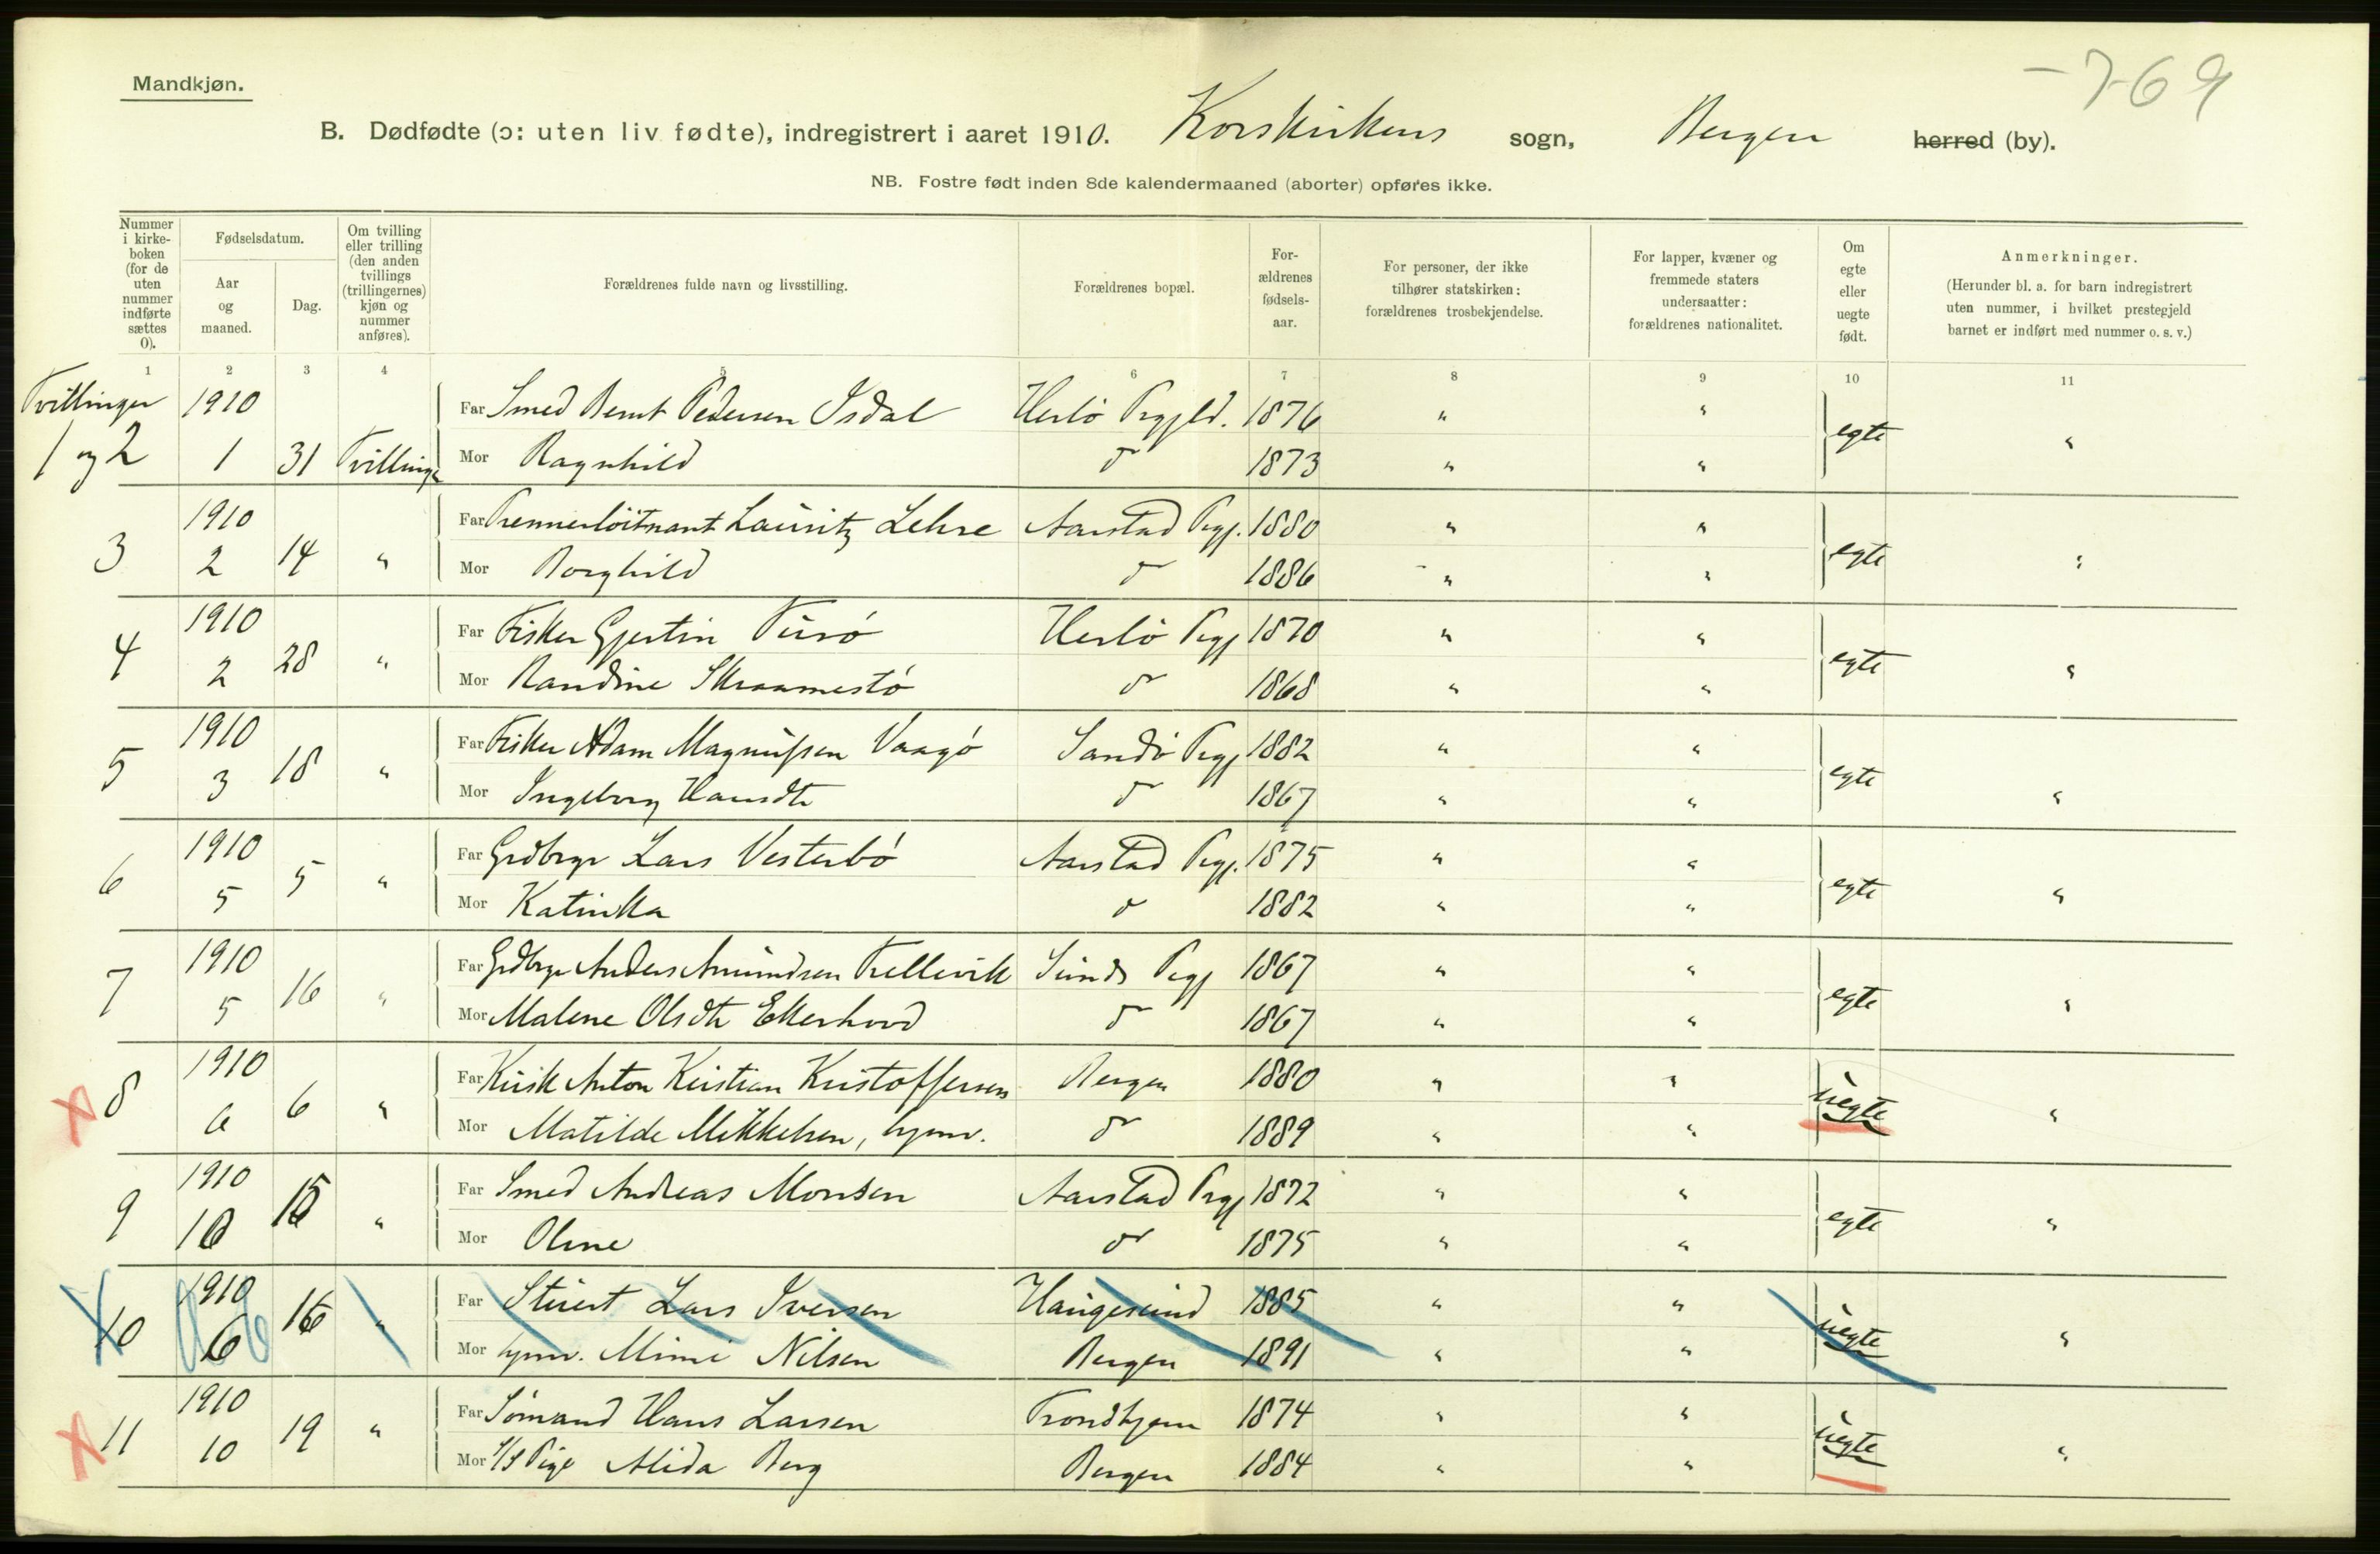 -769
Mandkjøn.
B. Dødfødte (ɔ: uten liv fødte), indregistrert i aaret 1910. Korskirkens sogn, Bergen herred (by).
NB. Fostre født inden 8de kalendermaaned (aborter) opføres ikke.
Nummer i kirke-boken (for de uten nummer indførte sættes 0).
Fødselsdatum.
Aar og maaned.
Dag.
Om tvilling eller trilling (den anden tvillings (trillingernes) kjøn og nummer anføres).
Forældrenes fulde navn og livsstilling.
Forældrenes bopæl.
For-ældrenes fødsels-aar.
For personer, der ikke tilhører statskirken: forældrenes trosbekjendelse.
For lapper, kvæner og fremmede staters undersaatter: forældrenes nationalitet.
Om egte eller uegte født.
Anmerkninger.
(Herunder bl. a. for barn indregistrert uten nummer, i hvilket prestegjeld barnet er indført med nummer o. s. v.)
1 2 3 4 5 6 7 8 9 10 11
Tvillinger 1910 Far Smed Bernt Pedersen Isdal Herlö Prgjld. 1876 " "
1 og 2 1 31 Tvillinger Mor Ragnhild do 1873 " " egte "
1910 Far Premierlöitnant Lauritz Lehre Aarstad Prgj. 1880 " "
3 2 14 " Mor Borghild do 1886 " " egte "
1910 Far Fisker Gjertin Turö Herlö Prgj 1870 " "
4 2 28 " Mor Randine Skraamestö do 1868 " " egte "
1910 Far Fisker Adam Magnussen Vaagö Sandö Prgj 1882 " "
5 3 18 " Mor Ingeborg Hansdtr do 1867 " " egte "
1910 Far Grdbrgr Lars Vesterbö Aarstad Prgj. 1875 " "
6 5 5 " Mor Katinka do 1882 " " egte "
1910 Far Grdbrgr Anders Amundsen Tellevik Sunds Prgj 1867 " "
7 5 16 " Mor Malene Olsdtr Ekerhovd do 1867 " " egte "
1910 Far Kusk Anton Kristian Kristoffersen Bergen 1880 " "
8 6 6 " Mor Matilde Mikkelsen, hjmv. do 1889 " " uegte "
1910 Far Smed Andreas Monsen Aarstad Prgj 1872 " "
9 10 15 " Mor Oline do 1875 " " egte "
1910 Far Stuert Lars Iversen Haugesund 1885 " "
10 6 16 " Mor hjmv. Mimi Nilsen Bergen 1891 " " uegte "
1910 Far Sömand Hans Larsen Trondhjem 1874 " "
11 10 19 " Mor Pige Alida Berg Bergen 1884 " " uegte "